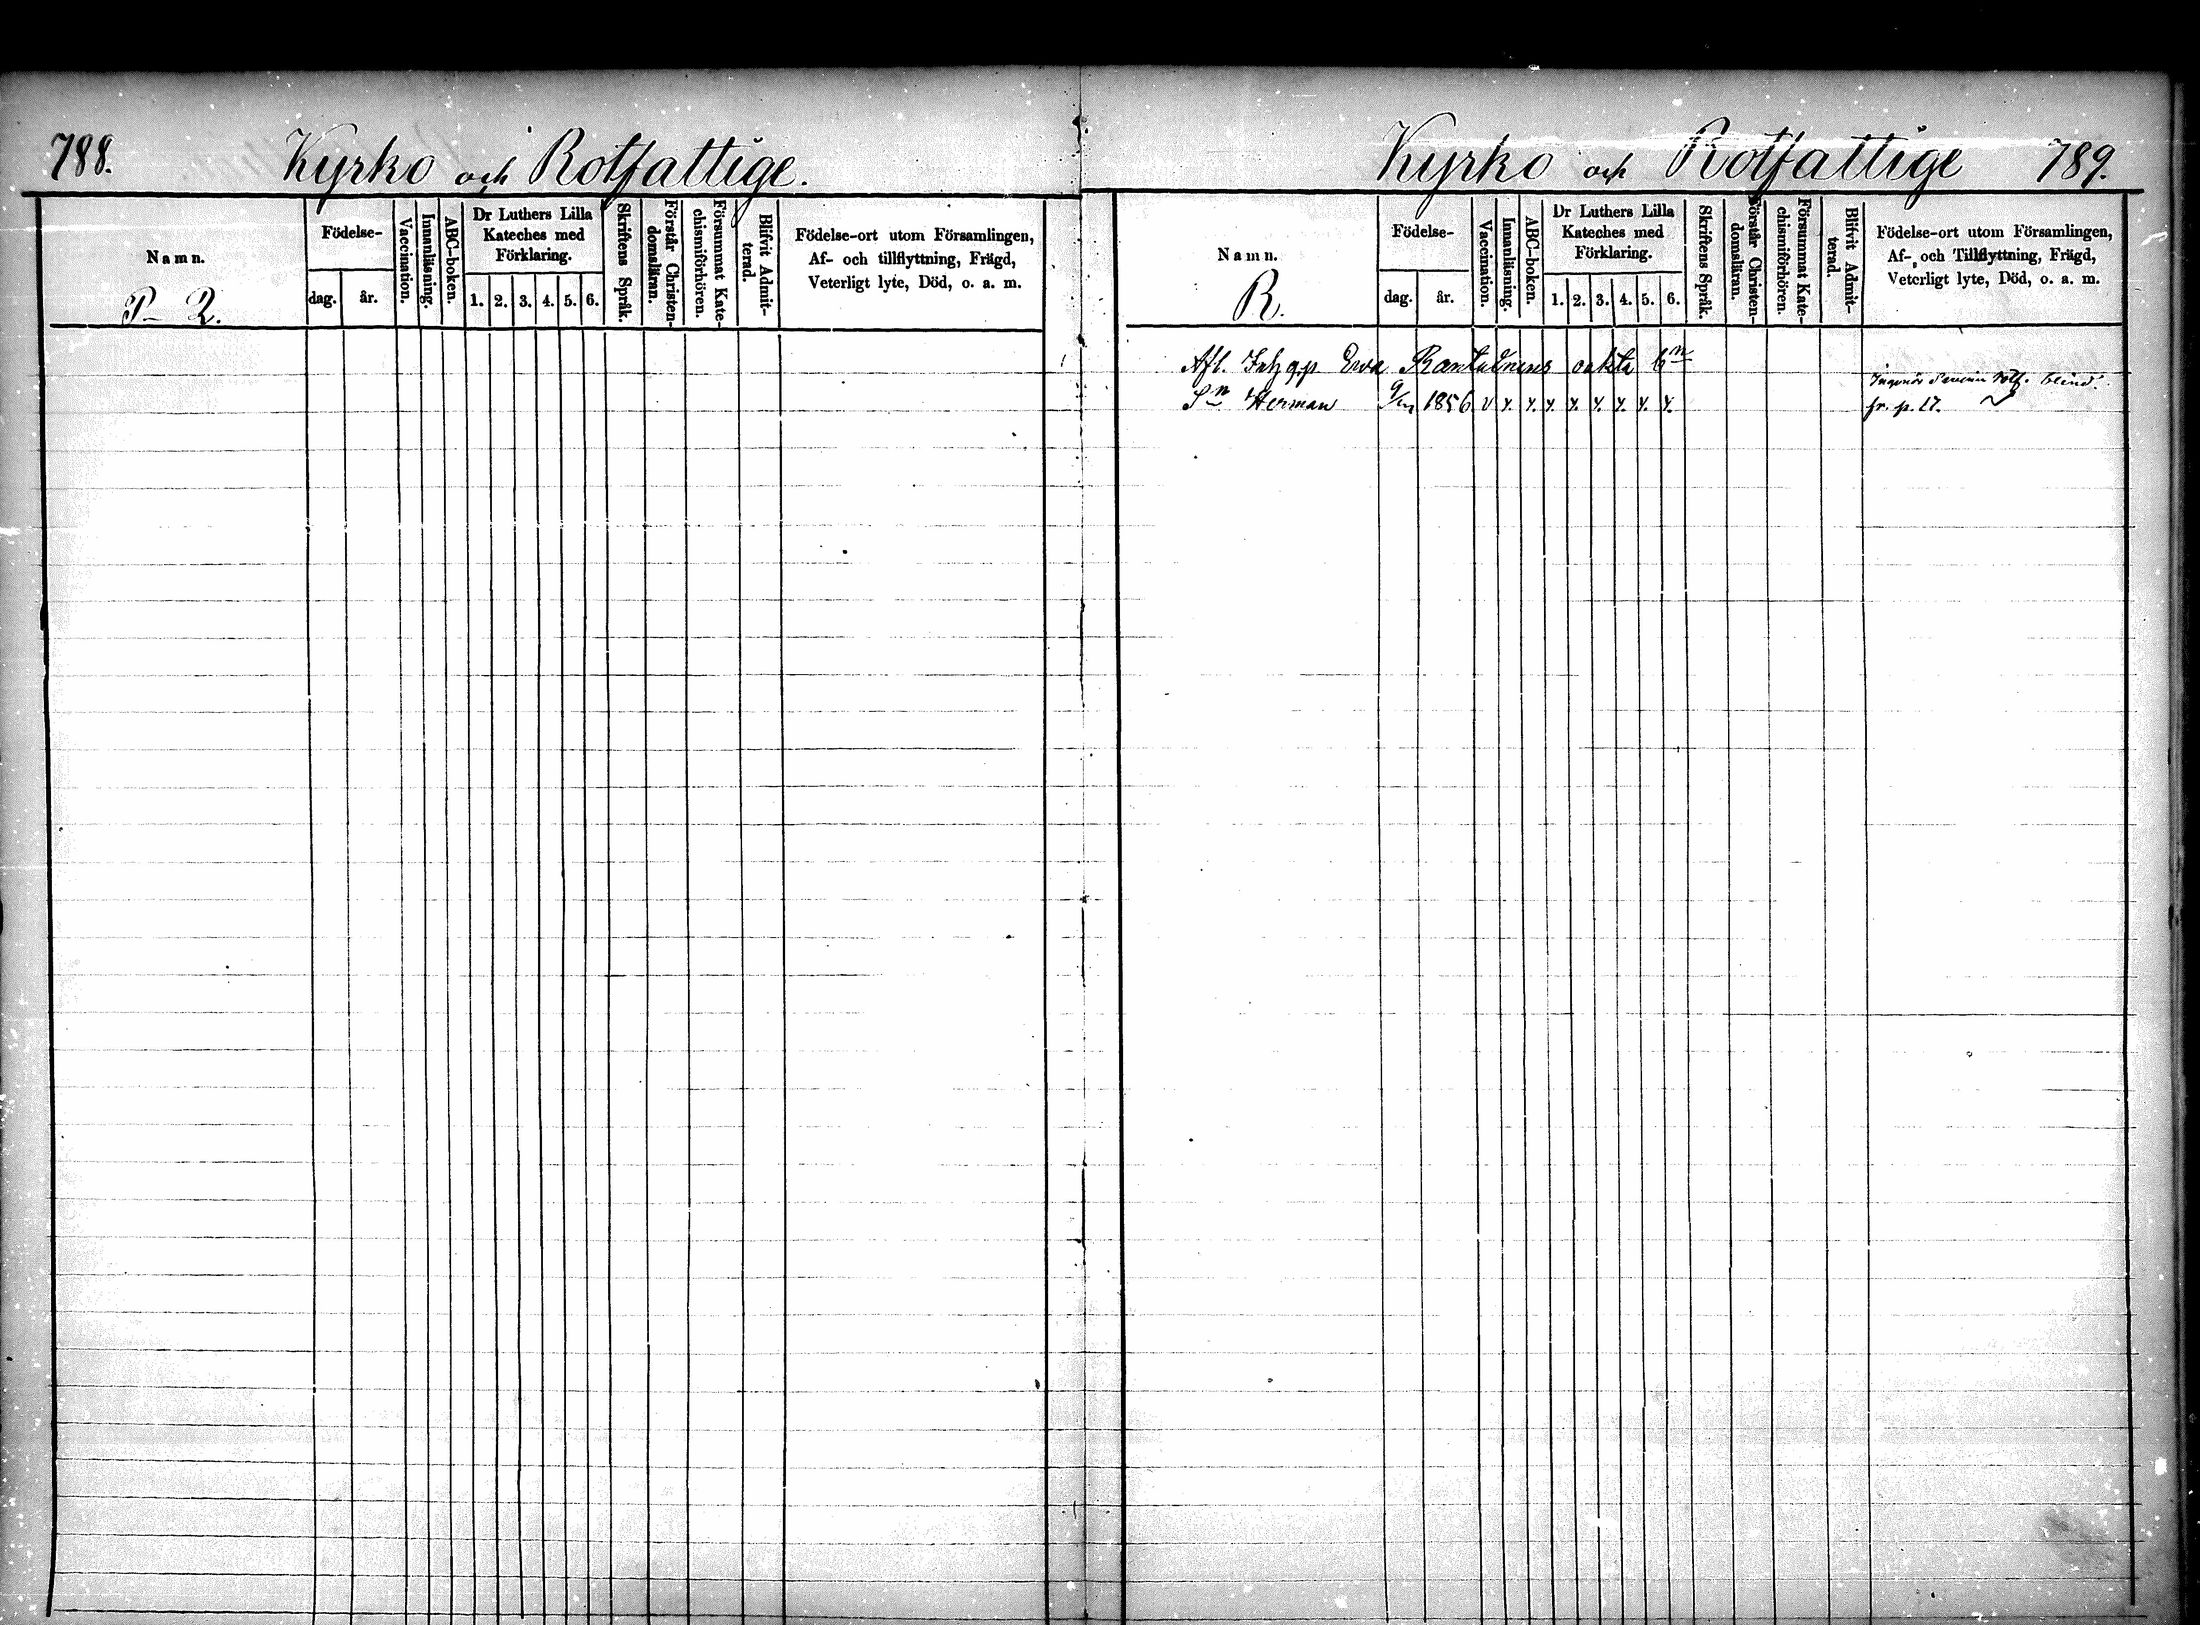 788.
Kyrko och Rotfattige.
Namn.
P - Q.
Födelse-
dag.
år.
Vaccination.
Innanläsning.
ABC-boken.
Dr Luthers Lilla
Kateches med
Förklaring.
1. 2. 3. 4. 5. 6.
Skriftens Språk.
Förstår Christen-
domsläran.
Försummat Kate-
chismiförhören.
Blifvit Admit-
terad.
Födelse-ort utom Församlingen,
Af- och tillflyttning, Frägd,
Veterligt lyte, Död, o. a. m.
Kyrko och Rotfattige
789.
Namn.
R.
Födelse-
dag.
år.
Vaccination.
Innanläsning.
ABC-boken.
Dr Luthers Lilla
Kateches med
Förklaring.
1. 2. 3. 4. 5. 6.
Skriftens Språk.
Förstår Christen-
domsläran.
Försummat Kate-
chismiförhören.
Blifvit Admit-
terad.
Födelse-ort utom Församlingen,
Af- och Tillflyttning, Frägd,
Veterligt lyte, Död, o. a. m.
Afl. Ewa oäkta bn
Sn Herman 1856 v
blind.
fr. p. 27.